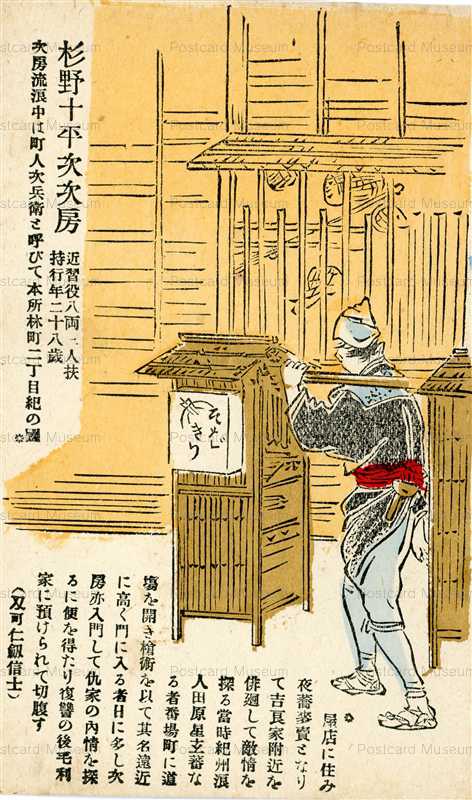 杉野十平次次房
近習役八両三人扶
持行年二十八歳
次房流浪中は町人次兵衛と呼びて本所林町二丁目紀の國
屋店に住み
夜蕎麥賣となり
て吉良家附近を
俳廻して敵情を
探る當時紀州浪
人田原星玄蕃な
る者番場町に道
塲を開き槍術を以て其名遠近
に高く門に入る者日に多し次
房亦入門して仇家の內情を探
るに便を得たり復讐の後毛利
家に預けられて切腹す
(刄可仁劔信士)
そば
きり
Postcard Museum